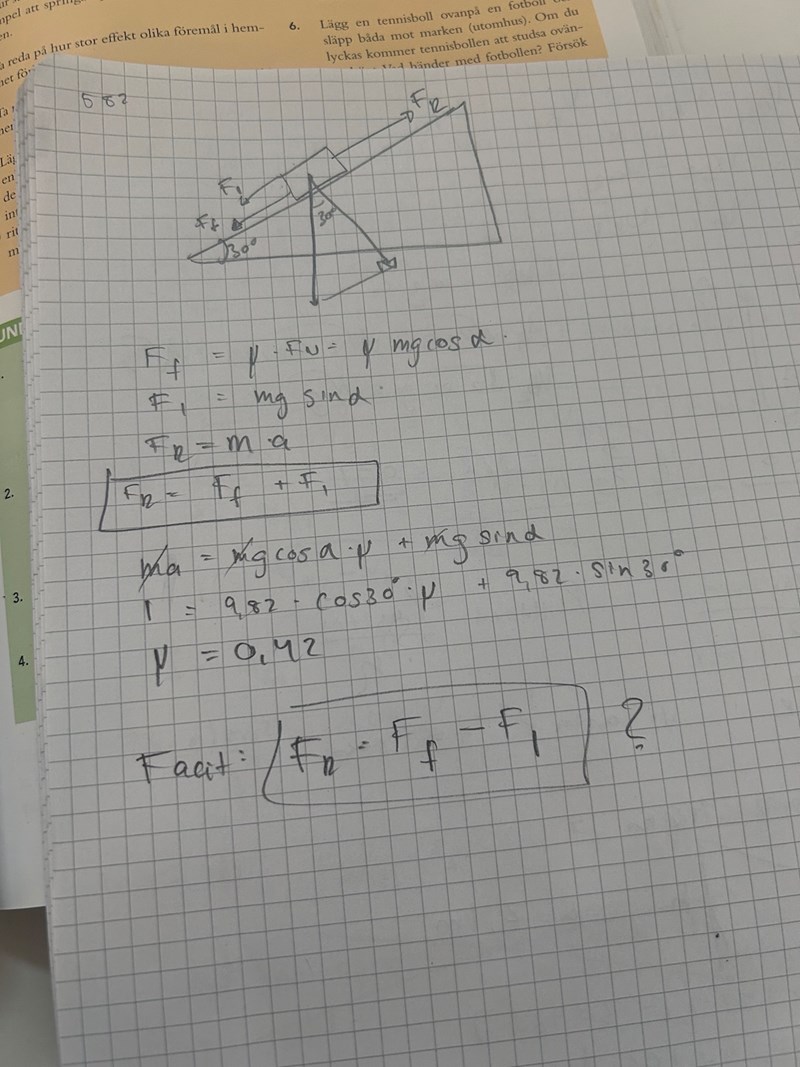 mpel att spring
en.
a reda på hur stor effekt olika föremål i hem-
net för
6. Lägg en tennisboll ovanpå en fotboll
släpp båda mot marken (utomhus). Om du
lyckas kommer tennisbollen att studsa ovän-
händer med fotbollen? Försök
Läg
en
de
int
rit
m
UNI
2.
3.
4.
582
F_R
F_1
F_f
30°
30°
F_f = μ · F_N = μ mg cos α
F_1 = mg sin α
F_R = m · a
F_R = F_f + F_1
ma = mg cos α · μ + mg sin α
1 = 9,82 · cos 30° · μ + 9,82 · sin 30°
μ = 0,42
Facit: F_R = F_f - F_1 ?